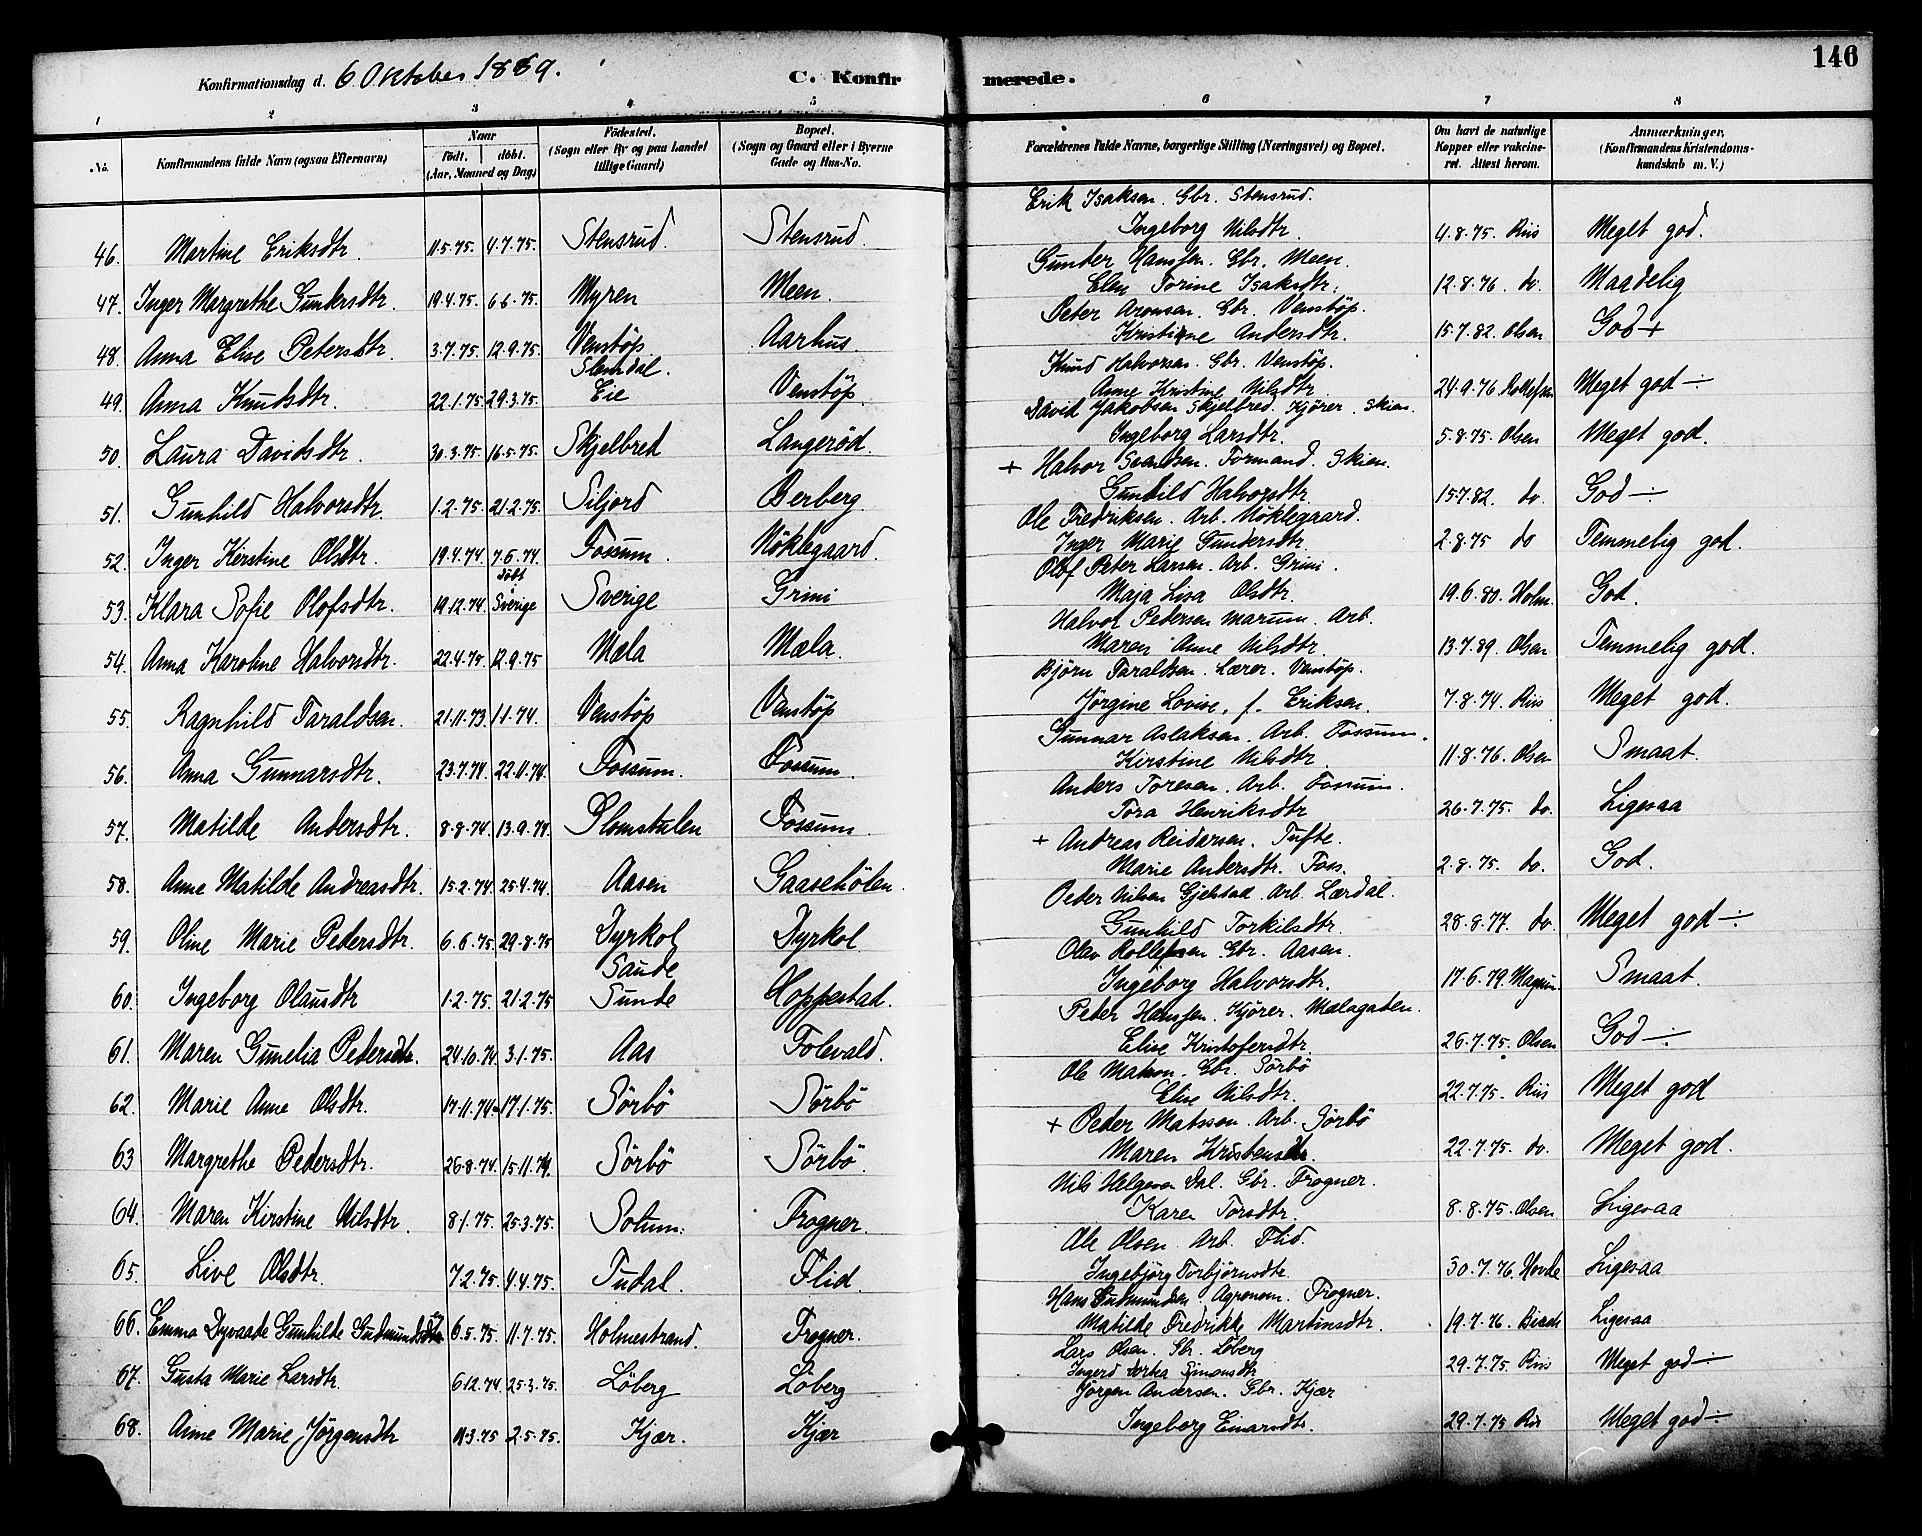 146
Konfirmationsdag d. 6 Oktober 1889.
C. Konfirmerede.
1 2 3 4 5 6 7 8
No.
Konfirmandens fulde Navn (ogsaa Efternavn)
Naar
Født. døbt.
(Aar, Maaned og Dag)
Fødested.
(Sogn eller By og paa Landet tillige Gaard)
Bopæl.
(Sogn og Gaard eller i Byerne Gade og Hus-No.
Forældrenes fulde Navne, borgerlige Stilling (Næringsvei) og Bopæl.
Om havt de naturlige Kopper eller vakcineret. Attest herom.
Anmærkninger.
(Konfirmandens Kristendomskundskab m. V.)
Erik Isaksen. Gbr. Stensrud.
46. Martine Eriksdtr. 11.5.75. 4.7.75. Stensrud. Stensrud. Ingeborg Nilsdtr. 4.8.75. Riis Meget god.
Gunder Hanssen. Gbr. Meen.
47. Inger Margrethe Gundersdtr. 19.4.75. 6.6.75. Myren Meen. Elen Torine Isaksdtr. 12.8.76. do. Maadelig
Peter Aronsen. Gbr. Venstöp.
48. Anna Elise Petersdtr. 3.7.75. 12.9.75. Venstöp Aarhus Kristiane Andersdtr. 15.7.82. Olsen God +
Slemdal. Knud Halvorsen. Gbr. Venstöp.
49. Anna Knudsdtr. 22.1.75 29.3.75. Eie Venstöp. Anne Kristine Nilsdtr. 24.9.76 Meget god ÷
David Jakobsen Skjelbred. Kjörer. Skien.
50. Laura Davidsdtr. 30.3.75. 16.5.75. Skjelbred Langeröd. Ingeborg Larsdtr. 5.8.75. Olsen Meget god.
+ Halvor Saandsen. Formand. Skien.
51. Gunhild Halvorsdtr. 1.2.75. 21.2.75. Siljord Berberg. Gunhild Halvorsdtr. 15.7.82. do. God ÷
Ole Fredriksen. Arb. Nöklegaard.
52. Inger Kirstine Olsdtr. 19.4.74 7.6.74 Fossum. Nöklegaard. Inger Marie Gundersdtr 2.8.75 do Temmelig god.
döbt Olof Peter Larsen. Arb. Grini.
53. Klara Sofie Olofsdtr. 19.12.74. Sverige Sverige Grini Maja Lisa Olsdtr. 19.6.80. Holm. God.
Halvor Pedersen Marum. Arb.
54. Anna Karoline Halvorsdtr. 22.4.75. 12.9.75 Mæla Mæla. Maren Anne Nilsdtr. 13.7.89. Olsen Temmelig god.
Björn Taraldsen. Lærer. Venstöp.
55. Ragnhild Taraldsen. 21.11.73. 1.1.74. Venstöp Venstöp Jörgine Lovise, f. Eriksen. 7.8.74. Riis Meget god.
Gunnar Aslaksen. Arb. Fossum.
56. Anna Gunnarsdtr. 23.7.74. 22.11.74. Fossum. Fossum. Kirstine Nilsdtr. 11.8.76. Olsen Smaat.
Anders Toresen. Arb. Fossum.
57. Matilde Andersdtr. 8.8.74. 13.9.74. Plomstulen Fossum. Tora Henriksdtr 26.7.75. do. Ligesaa
+ Andreas Reidarsen. Tufte.
58. Anne Matilde Andreasdtr. 15.2.74. 25.4.74. Aasen Gaasehölen. Marie Andersdtr. Foss. 2.8.75. do. God.
Peder Nilsen Gjelstad. Arb. Lærdal.
59. Oline Marie Pedersdtr. 6.6.75. 29.8.75 Dyrkol Dyrkol Gunhild Torkilsdtr. 28.8.77. do. Meget god ÷
Saude Olav Rollefsen. Gbr. Aasen.
60. Ingeborg Olausdtr 1.2.75. 21.2.75 Sunde Hoppestad. Ingeborg Halvorsdtr. 17.6.79. Smaat.
Peter Hanssen. Kjörer. Mælagaten.
61. Maren Gunelia Pedersdtr. 24.10.74. 3.1.75. Aas Folevald. Elise Kristofersdtr 26.7.75. Olsen God ÷
Ole Matson. Gbr. Sörbö
62. Marie Anne Olsdtr. 17.11.74. 17.1.75. Sörbö Sörbö Elise Nilsdtr. 22.7.75. Riis Meget god
+ Peder Matsson. Arb. Sörbö
63 Margrethe Pedersdtr. 26.8.74. 15.11.74. Sörbö Sörbö. Maren Kristensdtr. 22.7.75. do. Meget god.
Nils Helgesen Dal. Gbr. Frogner.
64. Maren Kirstine Nilsdtr. 8.1.75. 25.3.75. Solum. Frogner. Karen Torsdtr. 8.8.75. Olsen Ligesaa
Ole Olsen. Arb. Flid.
65. Live Olsdtr. 7.2.75. 4.4.75. Tudal. Flid Ingebjörg Torbjörnsdtr. 30.7.76. Hovde Ligesaa
Hans Gudmundsen. Agronom. Frogner.
66. Emma Dyveade Gunhilde Gudmundsdtr 6.5.75 11.7.75. Holmestrand. Frogner. Matilde Fredrikke Martinsdtr. 19.7.76. Ligesaa
Lars Olsen. Gbr. Löberg
67. Gusta Marie Larsdtr. 6.12.74 25.3.75. Löberg Löberg Ingerd Dortea Simonsdtr 29.7.75. Riis Meget god ÷
Jörgen Andersen. Gbr. Kjær
68. Anne Marie Jörgensdtr 11.3.75 2.5.75. Kjær. Kjær Ingeborg Einarsdtr. 29.7.75 Riis Meget god ÷